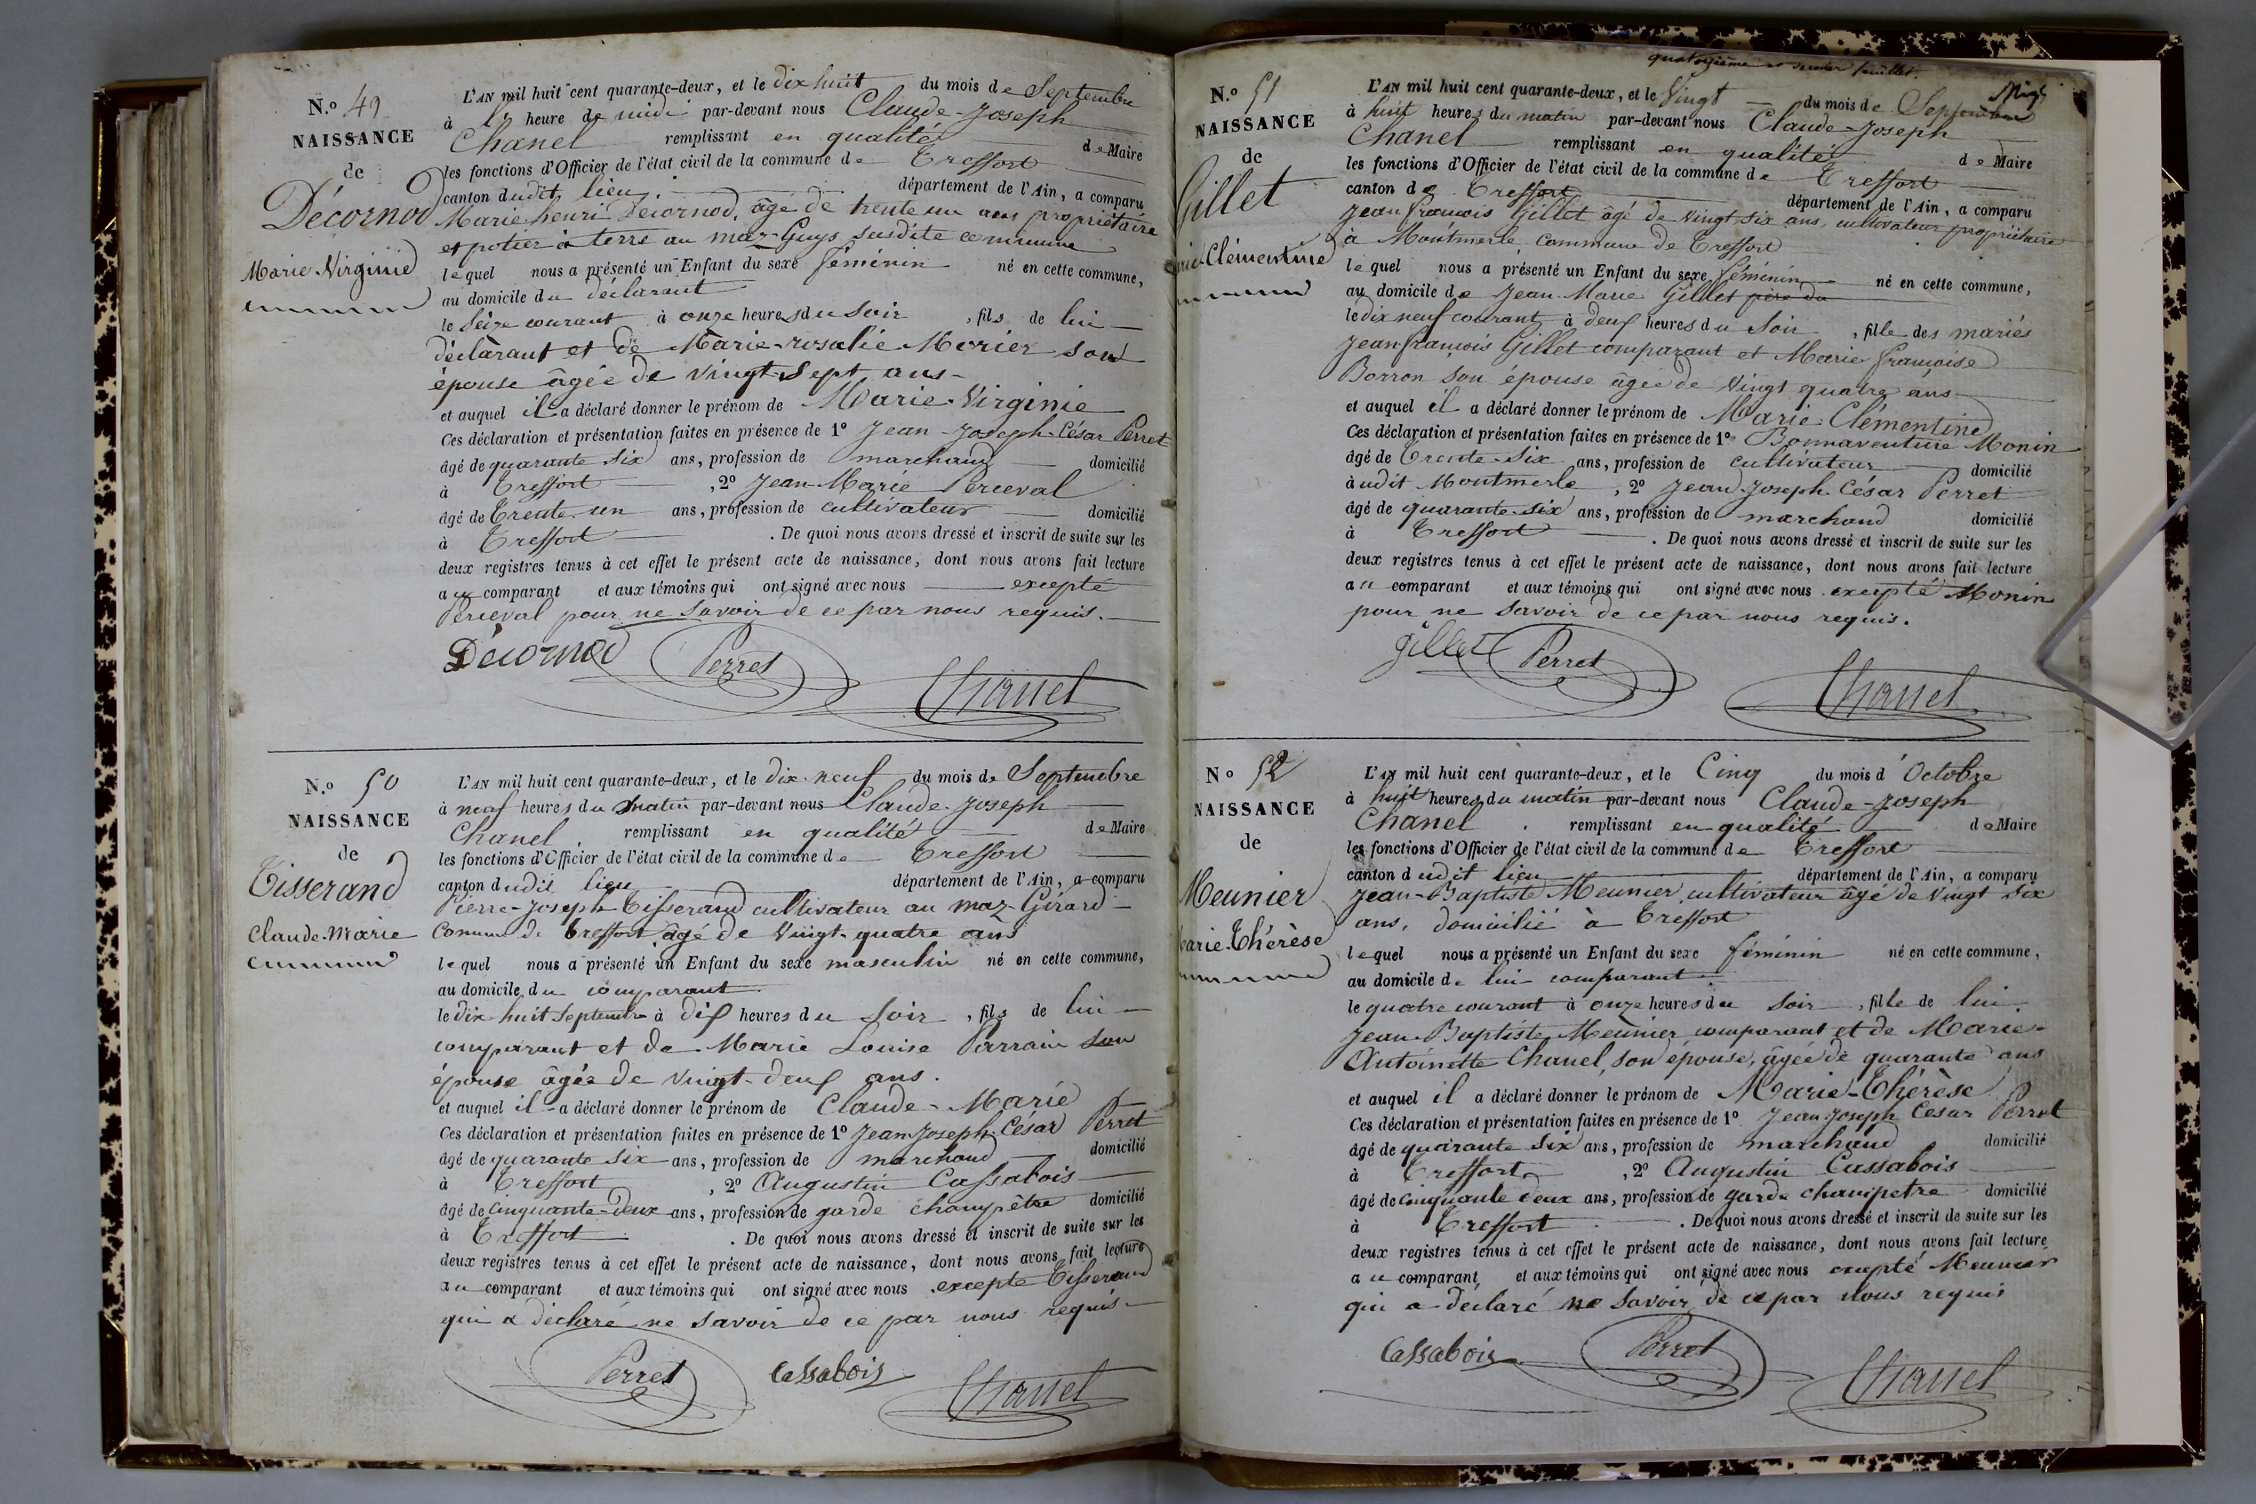 N.º 49
NAISSANCE
de
Décornod
Marie-Virginie
L'AN mil huit cent quarante-deux, et le dix huit du mois de Septembre
à heure de midi par-devant nous Claude-Joseph
Chanel remplissant en qualité de Maire
les fonctions d'Officier de l'état civil de la commune de Treffort
canton dudit lieu département de l'Ain, a comparu
Marie henri Décornod, âgé de trente un ans propriétaire
et potier à terre au maz-Guys susdite commune
lequel nous a présenté un Enfant du sexe féminin né en cette commune,
au domicile du déclarant
le Seize courant à onze heures du soir, fils de lui
déclarant et de Marie-rosalie Morier son
épouse âgée de vingt-sept ans
et auquel il a déclaré donner le prénom de Marie-Virginie
Ces déclaration et présentation faites en présence de 1º Jean-Joseph-César Perret
âgé de quarante six ans, profession de marchand domicilié
à Treffort, 2º Jean-Marie Perceval
âgé de trente-un ans, profession de cultivateur domicilié
à Treffort. De quoi nous avons dressé et inscrit de suite sur les
deux registres tenus à cet effet le présent acte de naissance, dont nous avons fait lecture
au comparant et aux témoins qui ont signé avec nous excepté
Perceval pour ne savoir de ce par nous requis.
Décornod Perret
Chanel
N.º 50
NAISSANCE
de
Tisserand
Claude-Marie
L'AN mil huit cent quarante-deux, et le dix-neuf du mois de Septembre
à neuf heures du matin par-devant nous Claude-Joseph
Chanel remplissant en qualité de Maire
les fonctions d'Officier de l'état civil de la commune de Treffort
canton dudit lieu département de l'Ain, a comparu
Pierre-Joseph Tisserand cultivateur au maz-Girard
Comune de Treffort âgé de vingt-quatre ans
lequel nous a présenté un Enfant du sexe masculin né en cette commune,
au domicile du comparant
le dix-huit Septembre à dix heures du soir, fils de lui
comparant et de Marie Louise Parrain son
épouse âgée de vingt-deux ans.
et auquel il a déclaré donner le prénom de Claude-Marie
Ces déclaration et présentation faites en présence de 1º Jean-Joseph-César Perret
âgé de quarante six ans, profession de marchand domicilié
à Treffort, 2º Augustin Cassabois
âgé de cinquante-deux ans, profession de garde champêtre domicilié
à Treffort. De quoi nous avons dressé et inscrit de suite sur les
deux registres tenus à cet effet le présent acte de naissance, dont nous avons fait lecture
au comparant et aux témoins qui ont signé avec nous excepté Tisserand
qui a déclaré ne savoir de ce par nous requis
Perret Cassabois
Chanel
quatorzième et dernier feuillet.
N.º 51
NAISSANCE
de
Gillet
Clémentine
L'AN mil huit cent quarante-deux, et le Vingt du mois de Septembre
à huit heures du matin par-devant nous Claude-Joseph
Chanel remplissant en qualité de Maire
les fonctions d'Officier de l'état civil de la commune de Treffort
canton de Treffort département de l'Ain, a comparu
Jean françois Gillet âgé de vingt-six ans, cultivateur propriétaire
à Montmerle commune de Treffort
lequel nous a présenté un Enfant du sexe féminin né en cette commune,
au domicile de Jean-Marie Gillet père du
le dix neuf courant à deux heures du soir, fille des mariés
Jean françois Gillet comparant et Marie françoise
Borron son épouse âgée de vingt quatre ans
et auquel il a déclaré donner le prénom de Marie-Clémentine
Ces déclaration et présentation faites en présence de 1º Bonnaventure Monin
âgé de Trente-six ans, profession de cultivateur domicilié
à udit Montmerle, 2º Jean-Joseph-César Perret
âgé de quarante-six ans, profession de marchand domicilié
à Treffort. De quoi nous avons dressé et inscrit de suite sur les
deux registres tenus à cet effet le présent acte de naissance, dont nous avons fait lecture
au comparant et aux témoins qui ont signé avec nous excepté Monin
pour ne savoir de ce par nous requis.
Gillet Perret
Chanel
N.º 52
NAISSANCE
de
Meunier
Marie-Thérèse
L'AN mil huit cent quarante-deux, et le Cinq du mois d'Octobre
à huit heures du matin par-devant nous Claude-Joseph
Chanel remplissant en qualité de Maire
les fonctions d'Officier de l'état civil de la commune de Treffort
canton dudit lieu département de l'Ain, a comparu
Jean-Baptiste Meunier cultivateur âgé de vingt six
ans, domicilié à Treffort
lequel nous a présenté un Enfant du sexe féminin né en cette commune,
au domicile de lui comparant
le quatre courant à onze heures du soir, fille de lui
Jean-Baptiste Meunier comparant et de Marie-
Antoinette Chanel, son épouse, âgée de quarante ans
et auquel il a déclaré donner le prénom de Marie-Thérèse
Ces déclaration et présentation faites en présence de 1º Jean-Joseph César Perret
âgé de quarante six ans, profession de marchand domicilié
à Treffort, 2º Augustin Cassabois
âgé de cinquante deux ans, profession de garde champetre domicilié
à Treffort. De quoi nous avons dressé et inscrit de suite sur les
deux registres tenus à cet effet le présent acte de naissance, dont nous avons fait lecture
au comparant et aux témoins qui ont signé avec nous excepté Meunier
qui a déclaré ne savoir de ce par nous requis
Cassabois Perret
Chanel